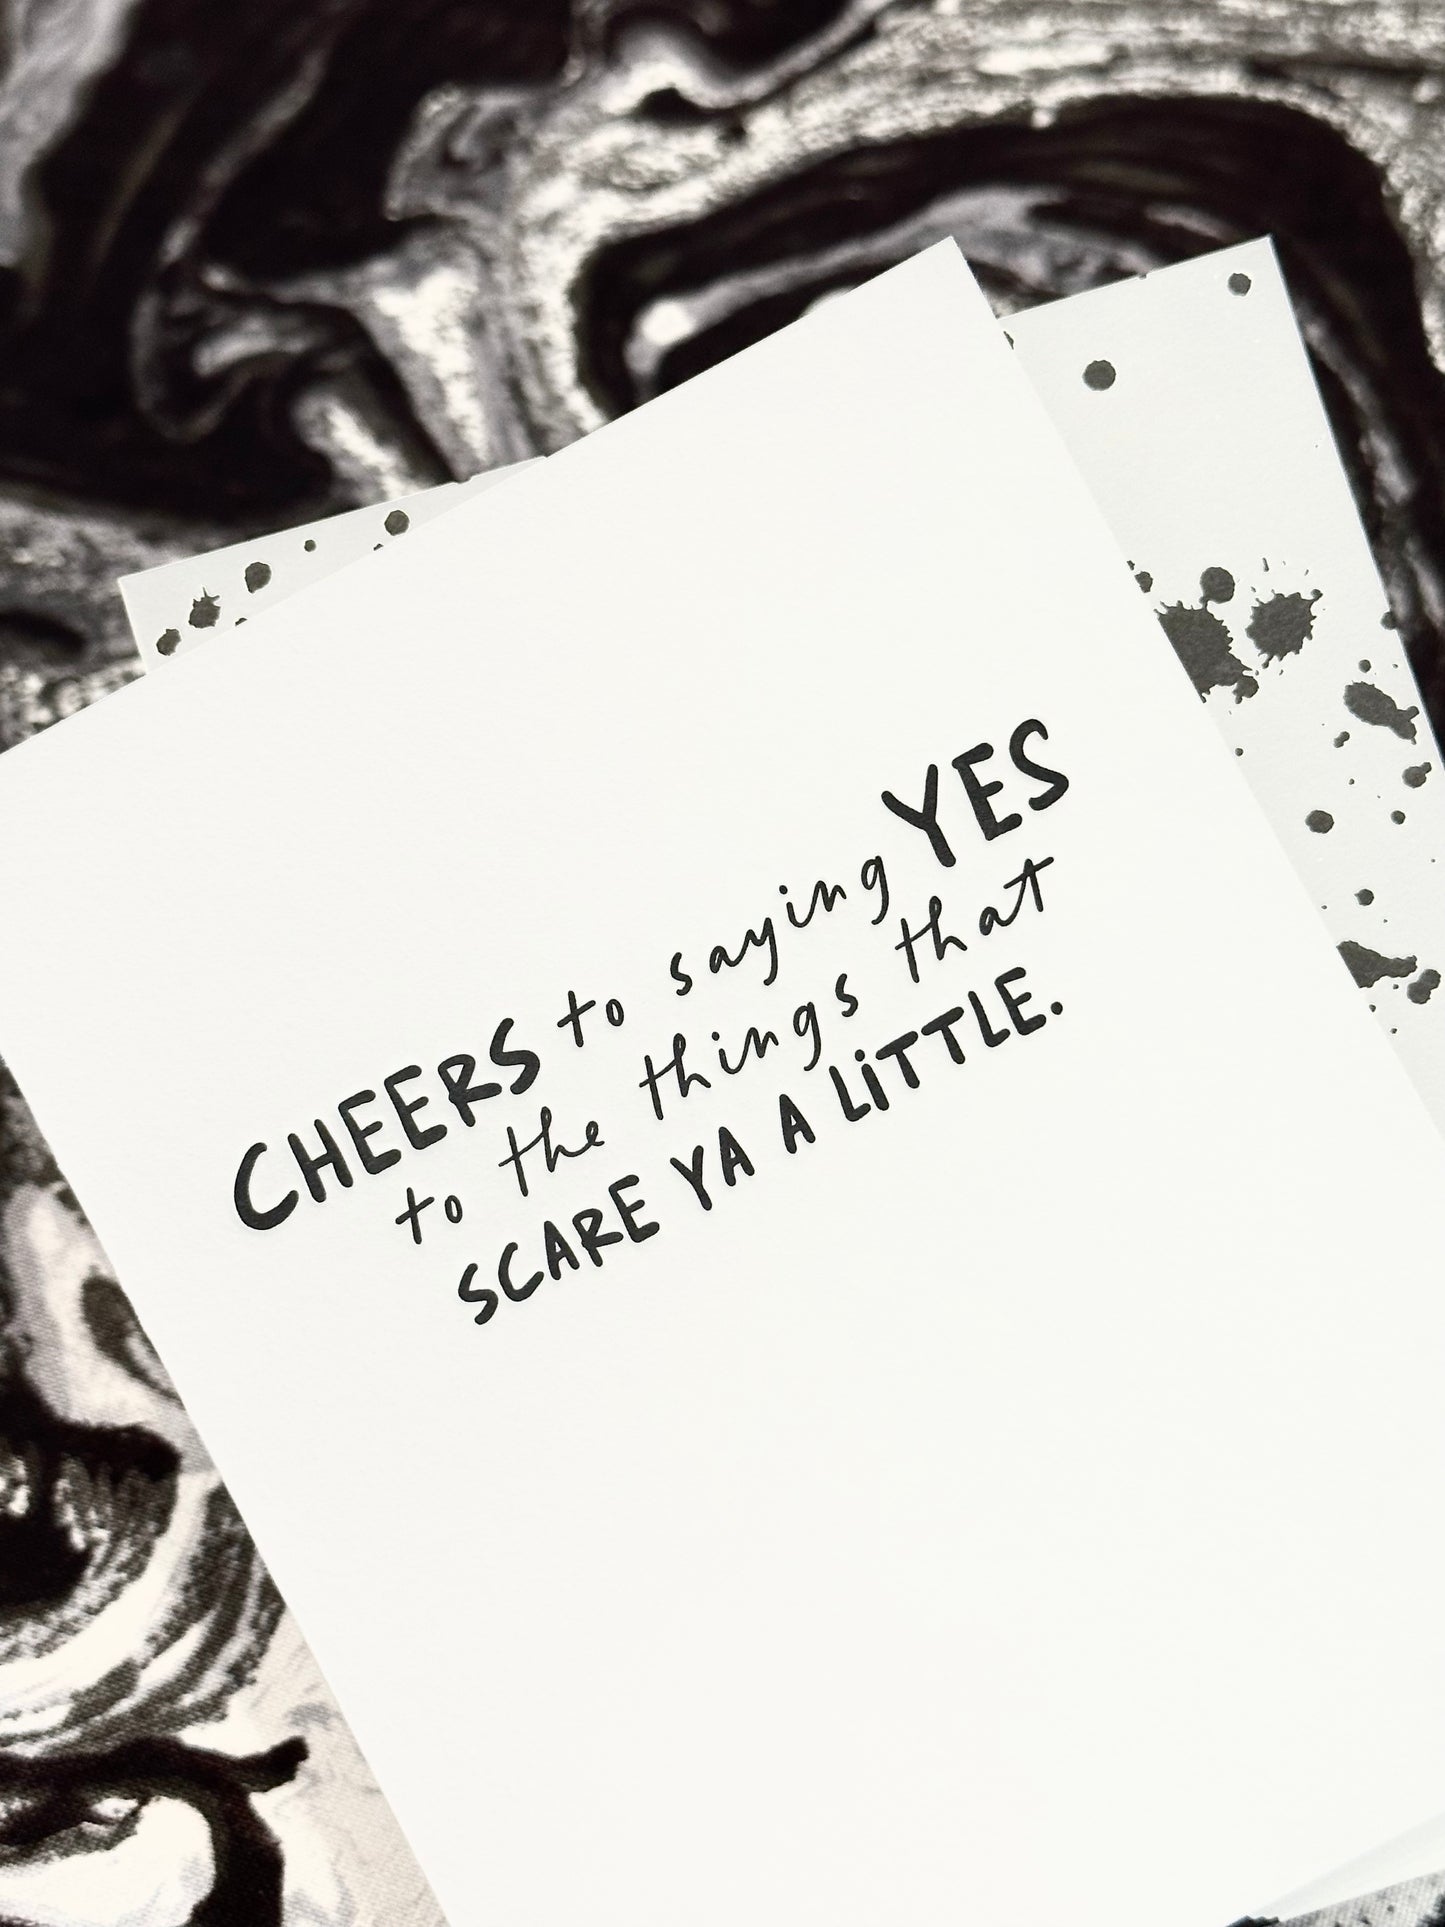 CHEERS to saying YES
to the things that
SCARE YA A LiTTLE.